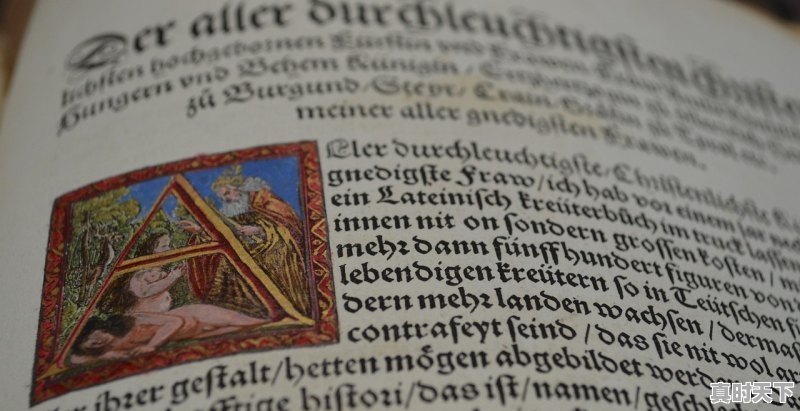 Der aller durchleuchtigsten Christen
lichsten hochgebornen Fürstin vnd Frawen
Hungern vnd Behem Künigin /
zů Burgund / Steyr / Crain / Gräfin zů Tyrol ꝛc.
meiner aller gnedigsten Frawen.
ALler durchleuchtigste / Christenlichste
gnedigste Fraw / ich hab vor einem jar
ein Lateinisch kreüterbůch im truck lassen
innen nit on sondern grossen kosten / m
mehr dann fünffhundert figuren von
lebendigen kreütern so in Teütschen
dern mehr landen wachsen / dermas
contrafeyt seind / das sie nit wol
ihrer gestalt / hetten mögen abgebildet werden
histori / das ist / namen / gesch
真时天下